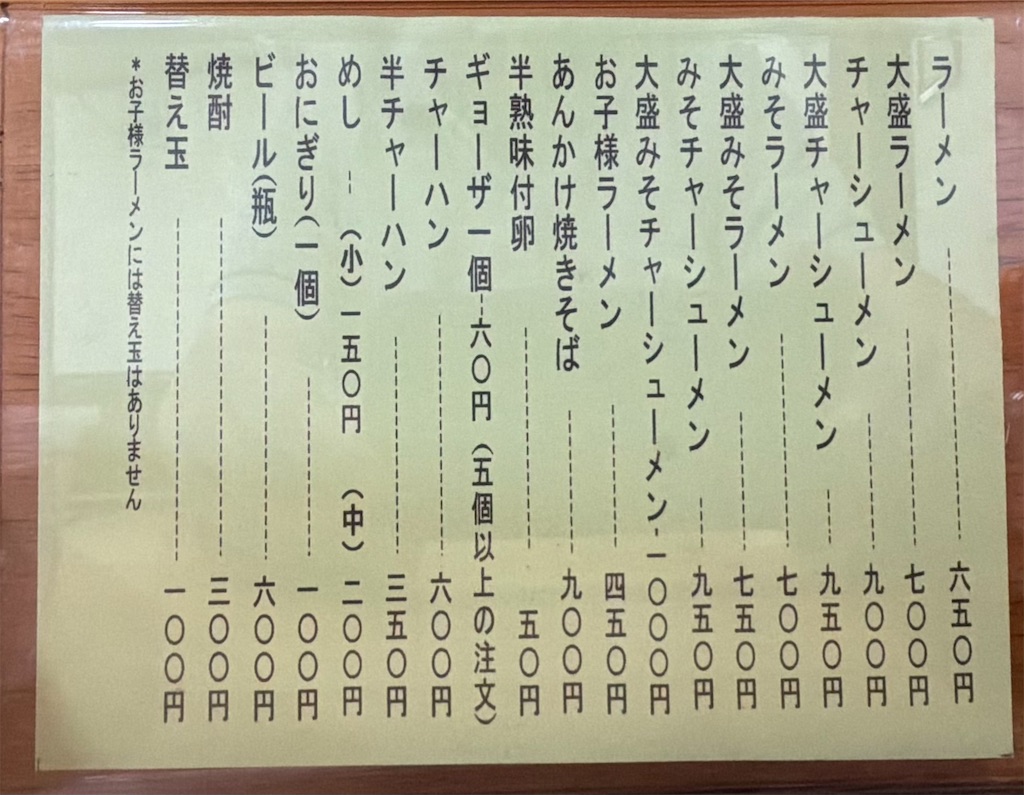 ラーメン ---------- 六五〇円
大盛ラーメン ---------- 七〇〇円
チャーシューメン ---------- 九〇〇円
大盛チャーシューメン ---------- 九五〇円
みそラーメン ---------- 七〇〇円
大盛みそラーメン ---------- 七五〇円
みそチャーシューメン ---------- 九五〇円
大盛みそチャーシューメン-一〇〇〇円
お子様ラーメン ---------- 四五〇円
あんかけ焼きそば ---------- 九〇〇円
半熟味付卵 ---------- 五〇円
ギョーザ一個--六〇円(五個以上の注文)
チャーハン ---------- 六〇〇円
半チャーハン ---------- 三五〇円
めし --(小)一五〇円 (中)二〇〇円
おにぎり(一個) ---------- 一〇〇円
ビール(瓶) ---------- 六〇〇円
焼酎 ---------- 三〇〇円
替え玉 ---------- 一〇〇円
*お子様ラーメンには替え玉はありません